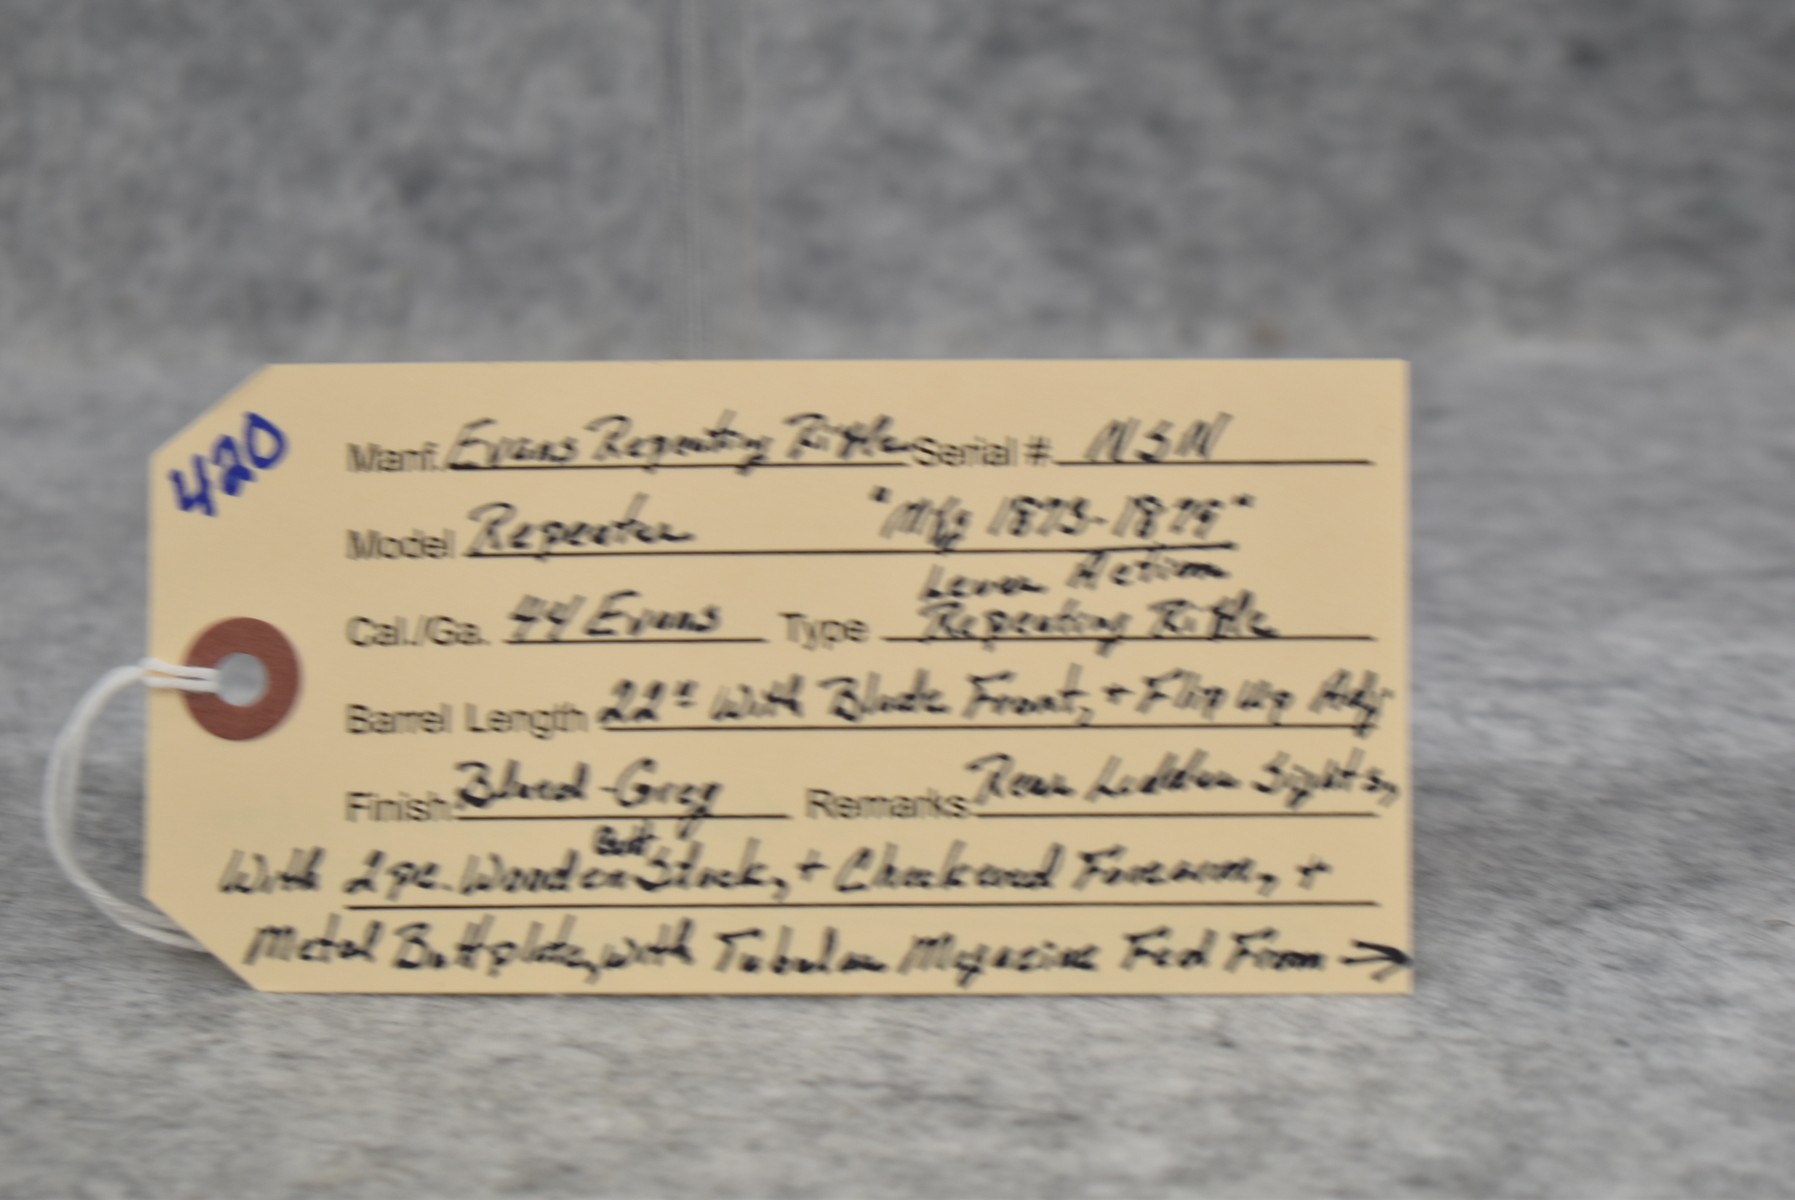 420
Manf. Evans Repeating Rifle Serial #. NSN
Model Repeater "Mfg 1873-1879"
Lever Action
Cal./Ga. 44 Evans Type Repeating Rifle
Barrel Length 22" with Blade Front, + Flip up Adj
Finish Blued-Grey Remarks Rear Ladder Sights,
Butt
With 2 pc. Wooden Stock, + Checkered Forearm, +
Metal Buttplate, with Tubular Magazine Fed From →